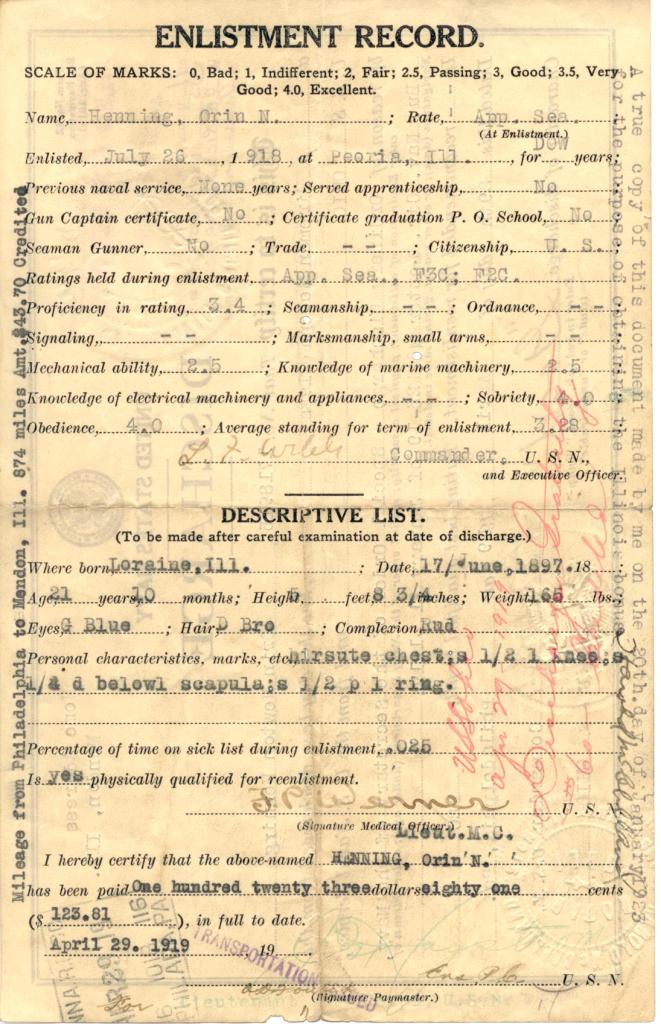 ENLISTMENT RECORD.
SCALE OF MARKS: 0, Bad; 1, Indifferent; 2, Fair; 2.5, Passing; 3, Good; 3.5, Very
Good; 4.0, Excellent.
Name, Henning, Orin N. ; Rate, App. Sea.
(At Enlistment.)
DOW
Enlisted, July 26 , 1918, at Peoria, Ill. , for years;
Previous naval service, None years; Served apprenticeship, No
Gun Captain certificate, No ; Certificate graduation P. O. School, No
Seaman Gunner, No ; Trade, - - ; Citizenship, U. S. ;
Ratings held during enlistment, App. Sea., F3C; F2C.
Proficiency in rating, 3.4 ; Seamanship, - - ; Ordnance, - -
Signaling, - - ; Marksmanship, small arms, - -
Mechanical ability, 2.5 ; Knowledge of marine machinery, 2.5
Knowledge of electrical machinery and appliances, - - ; Sobriety, 4.0
Obedience, 4.0 ; Average standing for term of enlistment, 3.28 ;
Commander, U. S. N.,
and Executive Officer.
DESCRIPTIVE LIST.
(To be made after careful examination at date of discharge.)
Where born Loraine, Ill. ; Date, 17/June, 1897. 18 ;
Age, 21 years, 0 months; Height, feet, 8 3/4 inches; Weight 165 lbs.
Eyes G Blue ; Hair, D Bro ; Complexion Rud
Personal characteristics, marks, etc, hirsute chest;s 1/2 l knee;s
1/4 d belowl scapula;s 1/2 p l ring.
Percentage of time on sick list during enlistment, .025
Is yes physically qualified for reenlistment.
U. S. N.
(Signature Medical Officer.)
Lieut. M.C.
I hereby certify that the above-named HENNING, Orin N.
has been paid One hundred twenty three dollars eighty one cents
($ 123.81 ), in full to date.
April 29. 1919 19
TRANSPORTATION
U. S. N.
(Signature Paymaster.)
Mileage from Philadelphia to Mendon, Ill. 874 miles Amt.$43.70 Credited
A true copy of this document made by me on the 20th.day of January,1923
for the purpose of obtaining the Illinois bonus